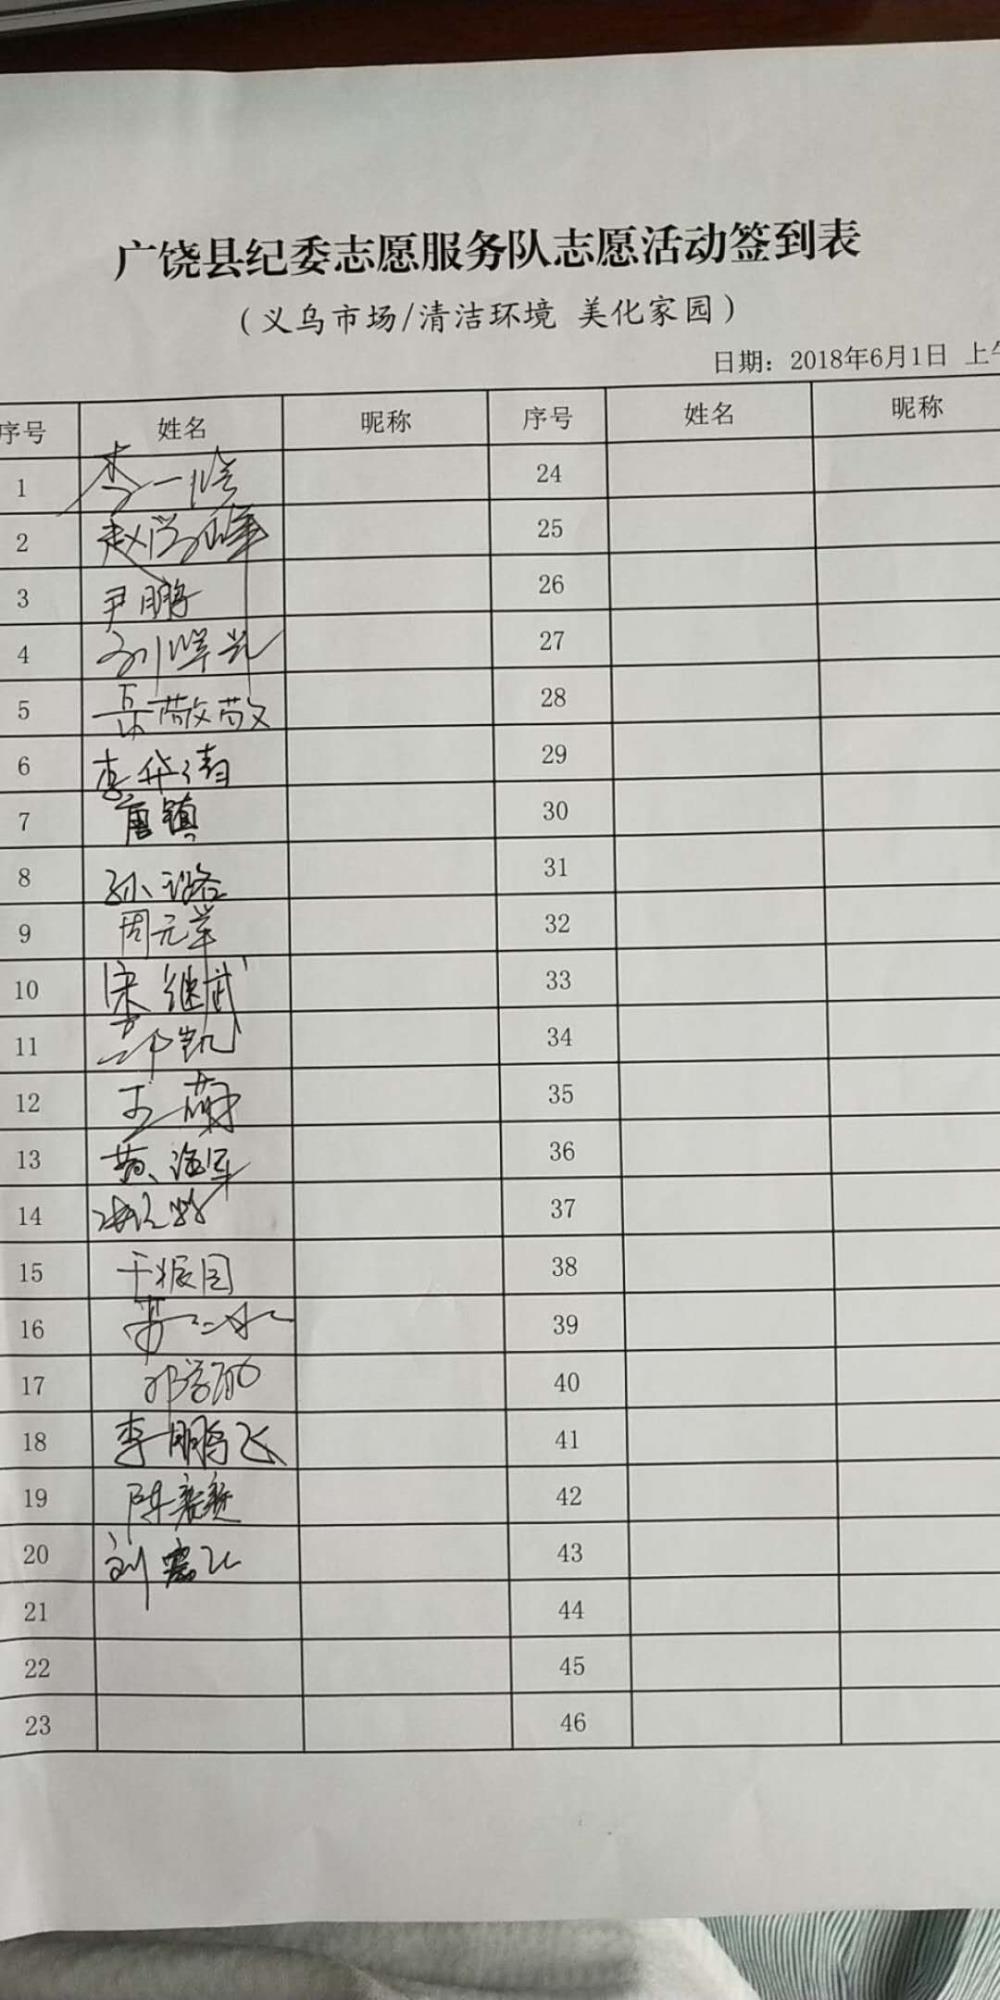 广饶县纪委志愿服务队志愿活动签到表
（义乌市场/清洁环境 美化家园）
日期：2018年6月1日 上午
序号 姓名 昵称 序号 姓名 昵称
1 李一 24
2 赵学峰 25
3 尹鹏 26
4 刘 27
5 岳敬敬 28
6 李华清 29
7 唐镇 30
8 孙璐 31
9 周元军 32
10 宋继武 33
11 郭凯 34
12 王萌 35
13 黄海军 36
14 37
15 于振国 38
16 39
17 邓学 40
18 李鹏飞 41
19 陈赛赛 42
20 刘 43
21 44
22 45
23 46